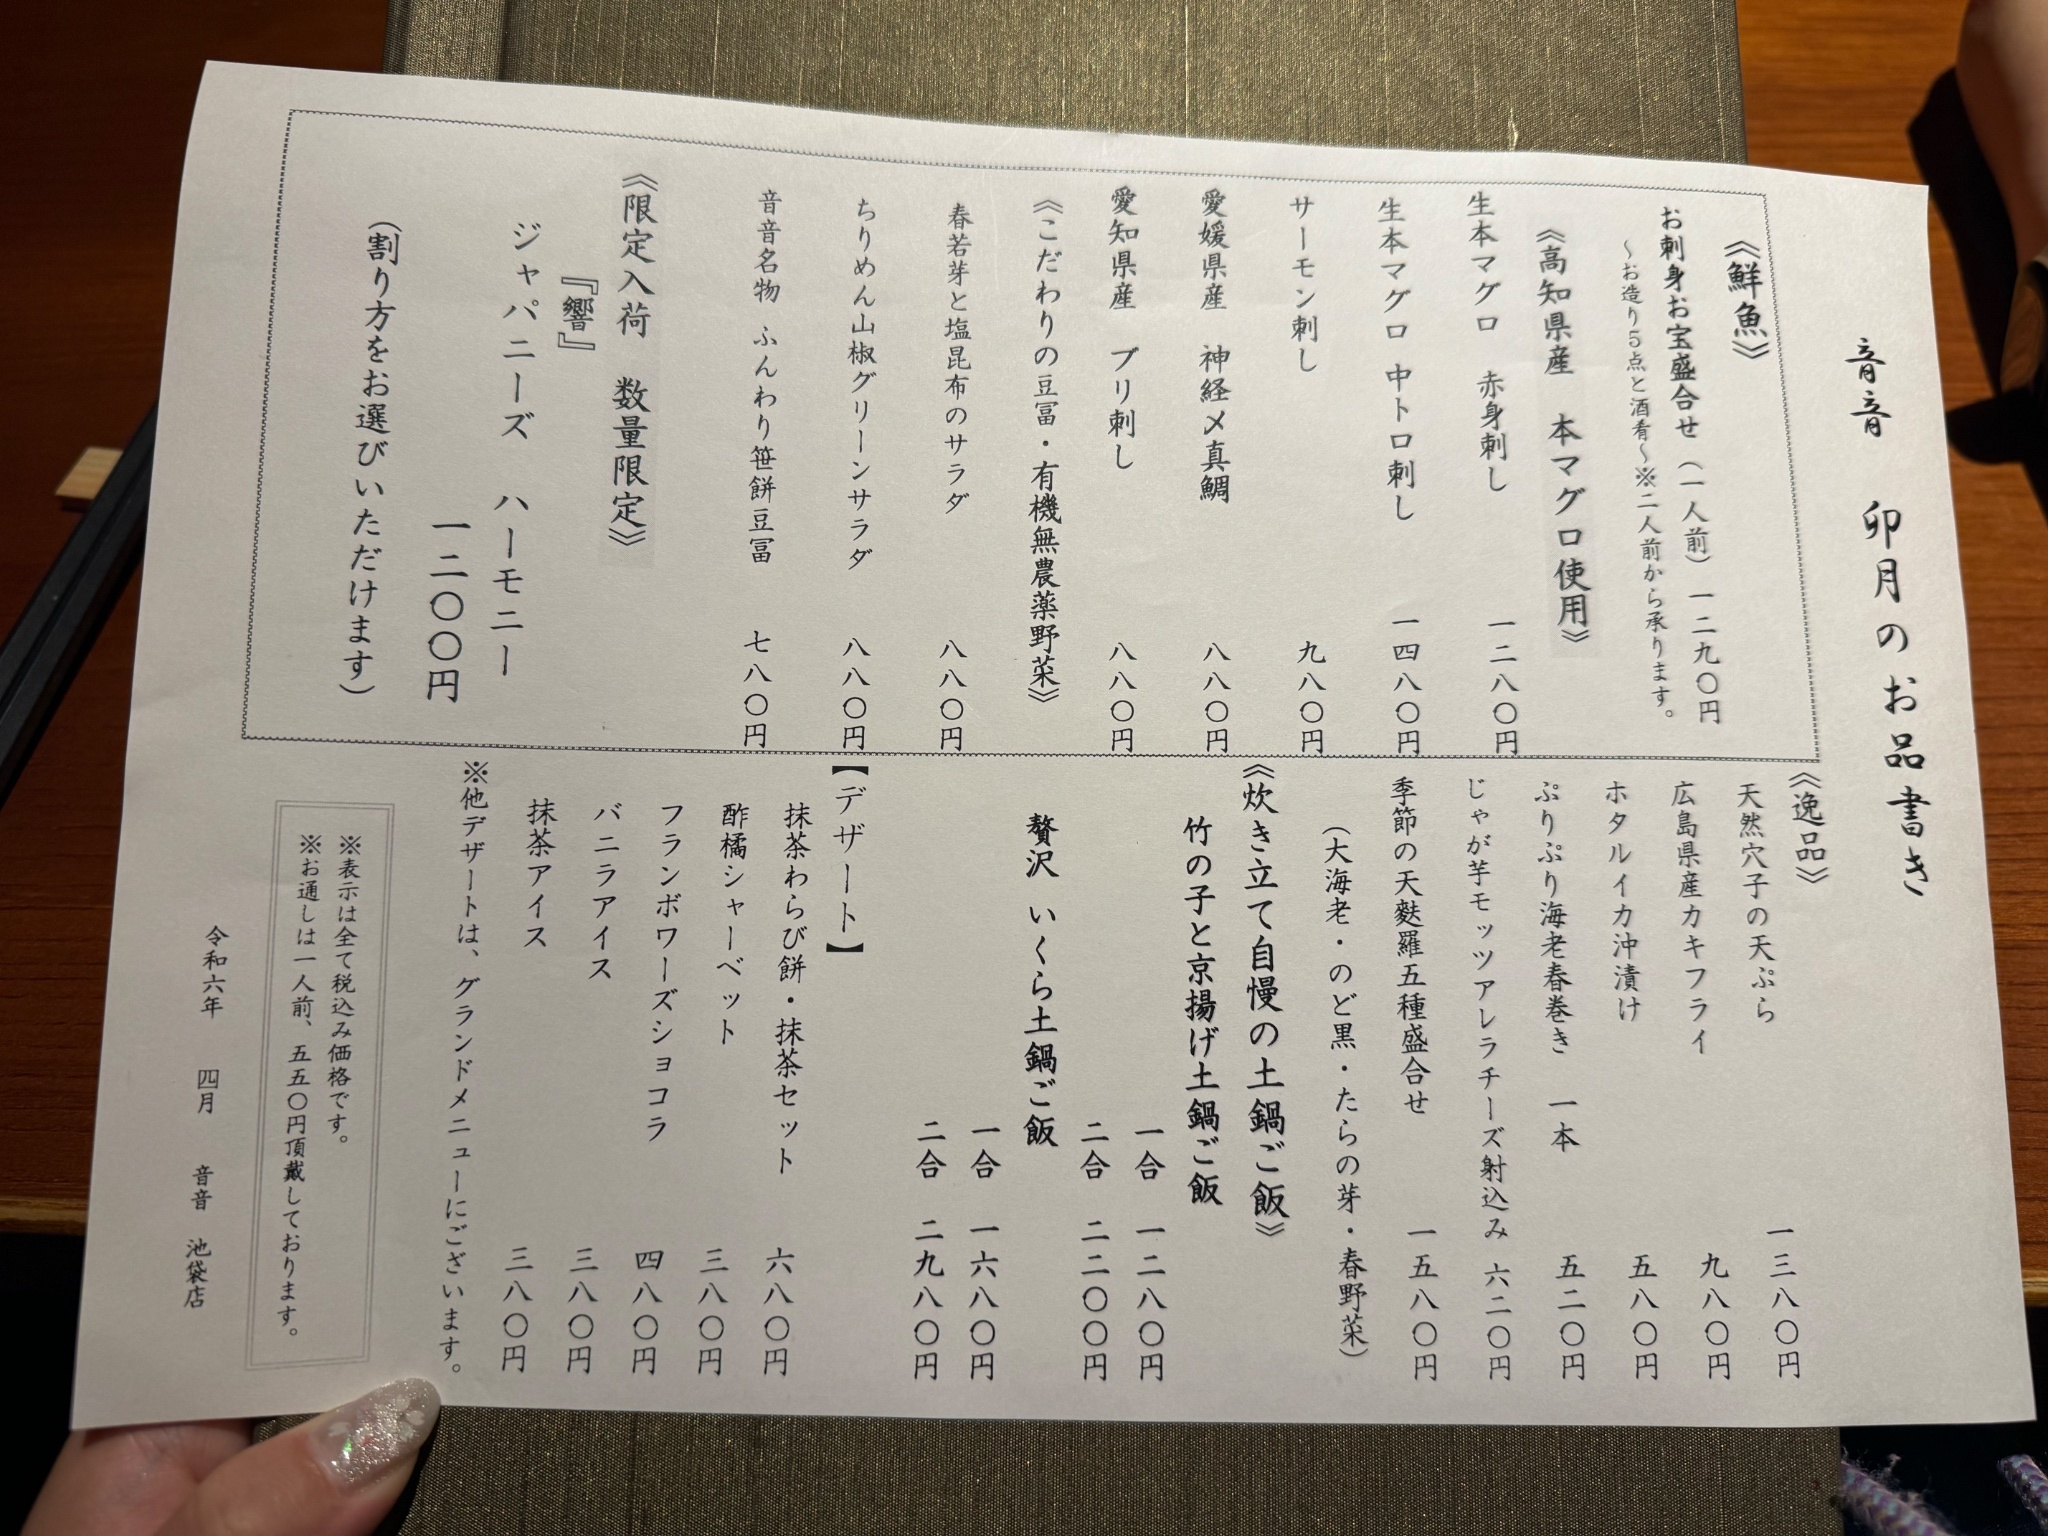 音音　卯月のお品書き
《鮮魚》
お刺身お宝盛合せ（一人前）一二九〇円
～お造り5点と酒肴～※二人前から承ります。
《高知県産　本マグロ使用》
生本マグロ　赤身刺し　一二八〇円
生本マグロ　中トロ刺し　一四八〇円
サーモン刺し　九八〇円
愛媛県産　神経〆真鯛　八八〇円
愛知県産　ブリ刺し　八八〇円
《こだわりの豆冨・有機無農薬野菜》
春若芽と塩昆布のサラダ　八八〇円
ちりめん山椒グリーンサラダ　八八〇円
音音名物　ふんわり笹餅豆冨　七八〇円
《限定入荷　数量限定》
『響』
ジャパニーズ　ハーモニー
一二〇〇円
（割り方をお選びいただけます）
《逸品》
天然穴子の天ぷら　一三八〇円
広島県産カキフライ　九八〇円
ホタルイカ沖漬け　五八〇円
ぷりぷり海老春巻き　一本　五二〇円
じゃが芋モッツアレラチーズ射込み　六二〇円
季節の天麩羅五種盛合せ　一五八〇円
（大海老・のど黒・たらの芽・春野菜）
《炊き立て自慢の土鍋ご飯》
竹の子と京揚げ土鍋ご飯
一合　一二八〇円
二合　二二〇〇円
贅沢　いくら土鍋ご飯
一合　一六八〇円
二合　二九八〇円
【デザート】
抹茶わらび餅・抹茶セット　六八〇円
酢橘シャーベット　三八〇円
フランボワーズショコラ　四八〇円
バニラアイス　三八〇円
抹茶アイス　三八〇円
※他デザートは、グランドメニューにございます。
※表示は全て税込み価格です。
※お通しは一人前、五五〇円頂戴しております。
令和六年　四月　音音　池袋店